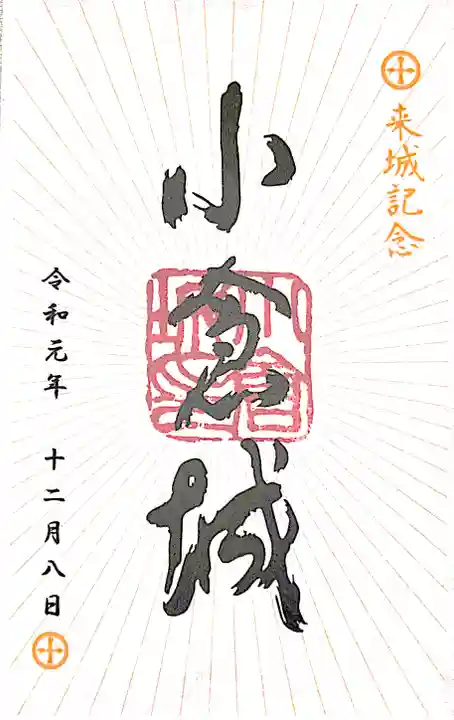 来城記念
小倉城
令和元年 十二月八日